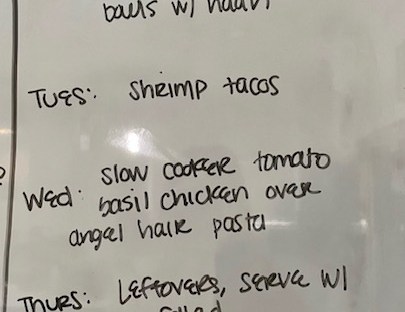 balls w/ naan
Tues: shrimp tacos
slow cooker tomato
Wed: basil chicken over
angel hair pasta
Thurs: Leftovers, serve w/